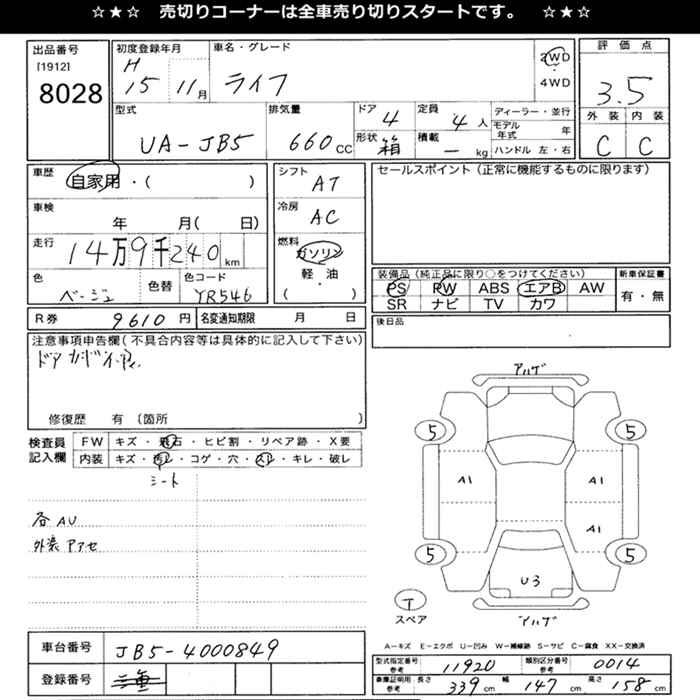 ☆★☆ 売切りコーナーは全車売り切りスタートです。 ☆★☆
出品番号
[1912]
8028
初度登録年月
H
15 11月
車名・グレード
ライフ
2WD
4WD
評価点
3.5
外装 内装
C C
型式
UA-JB5
排気量
660 CC
ドア 4
形状 箱
定員 4 人
積載 - kg
ディーラー・並行
モデル年式 年
ハンドル 左・右
車歴
自家用・( )
車検
年 月( 日)
走行
14万9千240 km
色
ベージュ
色替
色コード
YR546
シフト
AT
冷房
AC
燃料
ガソリン
軽・油
( )
セールスポイント (正常に機能するものに限ります)
装備品 (純正品に限り○をつけてください)
PS PW ABS エアB AW
SR ナビ TV カワ
新車保証書
有・無
R券 9610 円 名変通知期限 月 日
後日品
注意事項申告欄 (不具合内容等は具体的に記入して下さい)
修復歴 有 (箇所 )
検査員
記入欄
FW キズ・飛石・ヒビ割・リペア跡・X要
内装 キズ・汚れ・コゲ・穴・スレ・キレ・破レ
シート
各AU
5 5
A1 A1
A1
5 5
U3
T
スペア
車台番号 JB5-4000849
登録番号 三重
A-キズ E-エクボ U-凹み W-補修跡 S-サビ C-腐食 XX-交換済
型式指定番号 参考 11920 類別区分番号 参考 0014
車庫証明用 参考 長さ 339 cm 幅 147 cm 高さ 158 cm